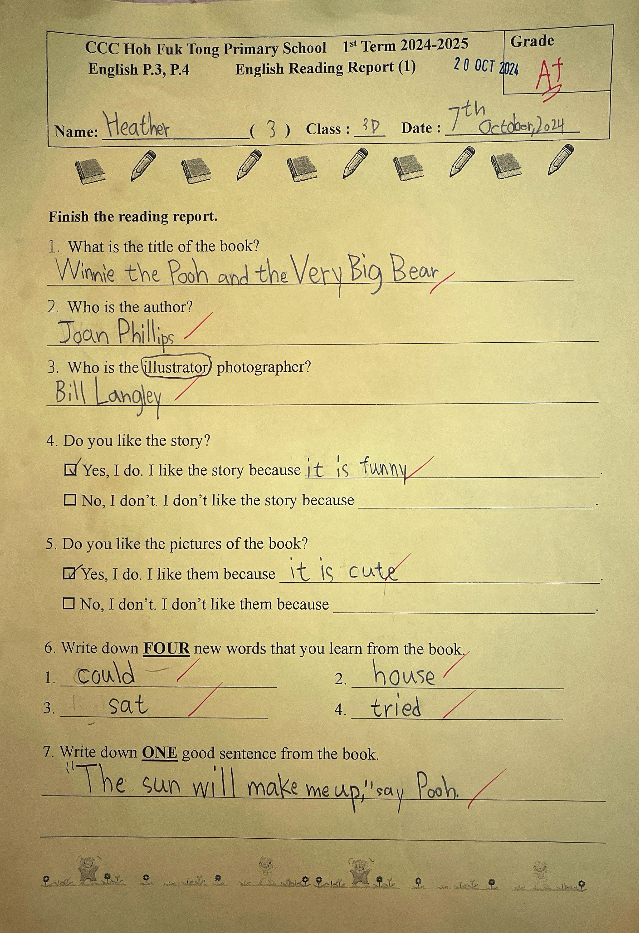 CCC Hoh Fuk Tong Primary School 1st Term 2024-2025 Grade
English P.3, P.4 English Reading Report (1) 20 OCT 2024 A+
Name: Heather ( 3 ) Class : 3D Date : 7th October, 2024
Finish the reading report.
1. What is the title of the book?
Winnie the Pooh and the Very Big Bear
2. Who is the author?
Joan Phillips
3. Who is the illustrator/ photographer?
Bill Langley
4. Do you like the story?
Yes, I do. I like the story because it is funny.
No, I don't. I don't like the story because .
5. Do you like the pictures of the book?
Yes, I do. I like them because it is cute.
No, I don't. I don't like them because .
6. Write down FOUR new words that you learn from the book.
1. could 2. house
3. sat 4. tried
7. Write down ONE good sentence from the book.
"The sun will make me up," say Pooh.